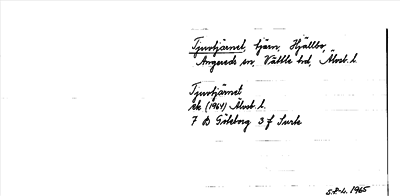 Tjuvtjärnet, tjärn, Hjällbo,
Angereds sn, Vättle hd, Älvsb. l.
Tjuvtjärnet
ek (1964) Älvsb. l.
7 B Göteborg 3 f Surte
S.P-L. 1965